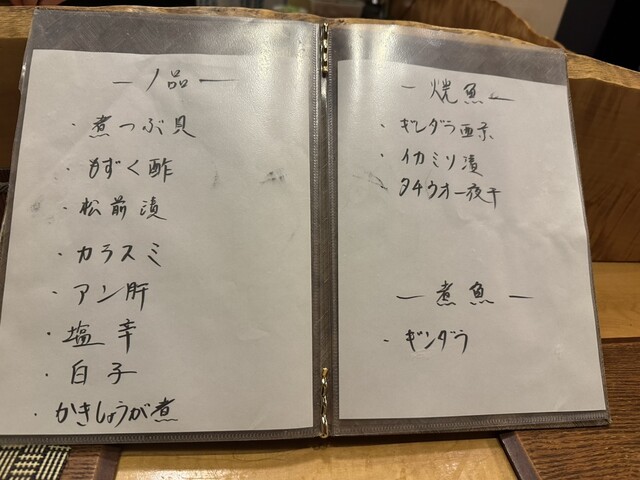 一 ノ品 一
・煮つぶ貝
・もずく酢
・松前漬
・カラスミ
・アン肝
・塩辛
・白子
・かきしょうが煮
一 焼魚 一
・ギンダラ西京
・イカミリン漬
・タチウオ一夜干
一 煮魚 一
・ギンダラ